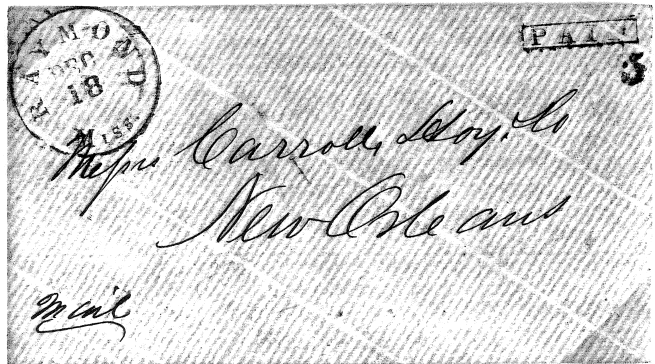 RAYMOND
DEC
18
MISS.
PAID
5
Messrs Carroll, Hoy & Co
New Orleans
Mail